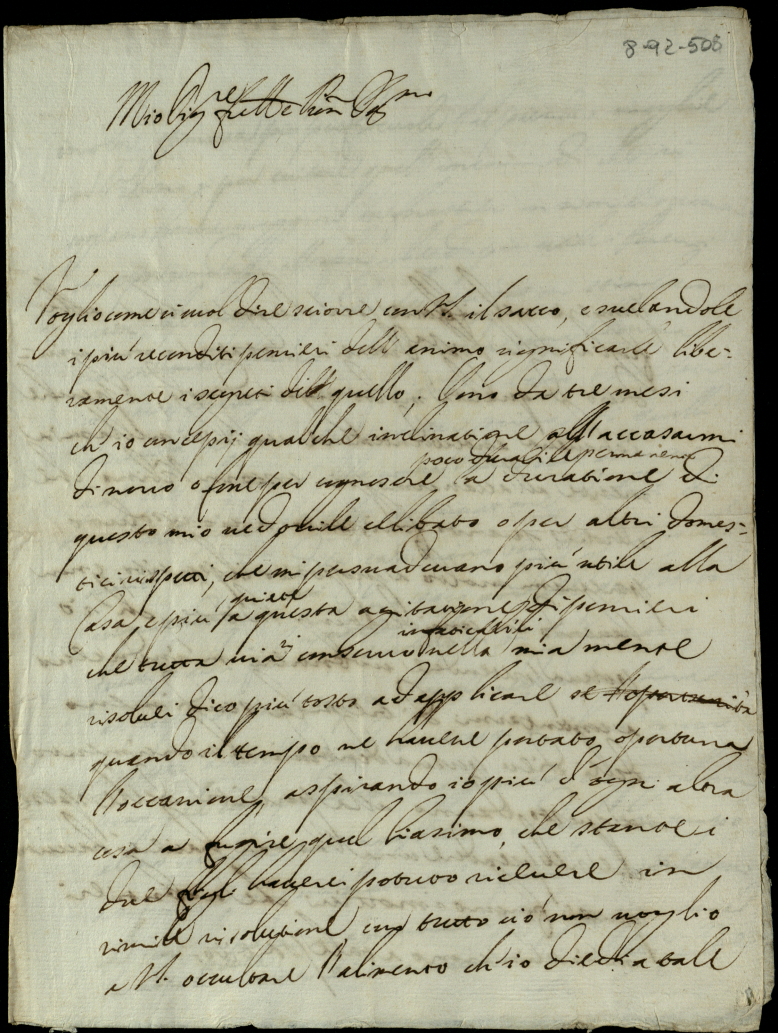 8-92-508
Mio Sig.re
Voglio come si suol dire sciorre con V.S. il sacco, e suelandole
i più reconditi pensieri dell' animo significarle libe=
ramente i segreti di quello; sono da tre mesi
ch' io concepij qualche inclinatione all' accasarmi
di nuovo o fosse per cognoscere poco durabile permanenza la duratione di
questo mio vedovile celibato o per altri domes=
tici rispetti, che mi persuadevano più utile alla
Casa e più quiete a questa agitatione di pensieri
che tutta via conservo nella mia mente
risolvei dico più tosto ad applicare se l'oportunità
quando il tempo ne havesse portato oportuna
l'occasione, aspirando io più d' ogni altra
cosa a fuggire quel biasimo, che stante i
due figli haverei potuto ricevere in
simile risolutione con tutto ciò non voglio
a V.S. occultare l'alimento ch' io diedi a tale